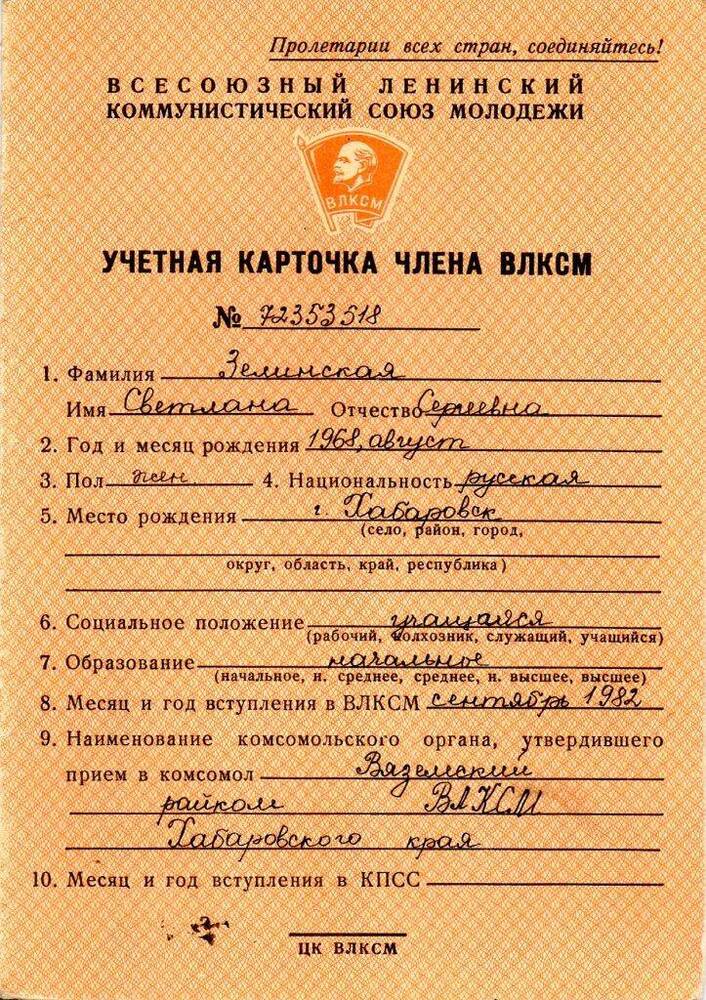 Пролетарии всех стран, соединяйтесь!
ВСЕСОЮЗНЫЙ ЛЕНИНСКИЙ
КОММУНИСТИЧЕСКИЙ СОЮЗ МОЛОДЕЖИ
ВЛКСМ
УЧЕТНАЯ КАРТОЧКА ЧЛЕНА ВЛКСМ
№ 72353518
1. Фамилия Зелинская
Имя Светлана Отчество Сергеевна
2. Год и месяц рождения 1968, август
3. Пол жен. 4. Национальность русская
5. Место рождения г. Хабаровск
(село, район, город,
округ, область, край, республика)
6. Социальное положение учащайся
(рабочий, колхозник, служащий, учащийся)
7. Образование начальное
(начальное, н. среднее, среднее, н. высшее, высшее)
8. Месяц и год вступления в ВЛКСМ сентябрь 1982
9. Наименование комсомольского органа, утвердившего
прием в комсомол Вяземский
райком ВЛКСМ
Хабаровского края
10. Месяц и год вступления в КПСС
ЦК ВЛКСМ